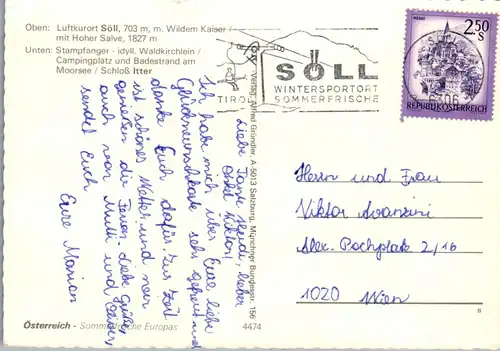 Oben: Luftkurort Söll, 703 m, m. Wildem Kaiser /
mit Hoher Salve, 1827 m
Unten: Stampfanger - idyll. Waldkirchlein /
Campingplatz und Badestrand am
Moorsee / Schloß Itter
TIROL
SÖLL
WINTERSPORTORT
SOMMERFRISCHE
2.50 S
MURAU
REPUBLIK ÖSTERREICH
6306
Verlag: Alfred Gründler A 5013 Salzburg, Münchner Bundesstr. 156
Liebe Tante Heidi, lieber
Onkel Viktor,
Ich habe mich über Eure liebe
Glückwunschkarte sehr gefreut und
danke Euch dafür. Zur Zeit
ist schönes Wetter und wir
genießen die Ferien. Liebe Grüße,
auch von Mutti und
sendet Euch
Eure Marion
Herrn und Frau
Viktor Avanzini
Alex. Pochplatz 2/16
1020 Wien
Österreich - Sommerfrische Europas
4474
8